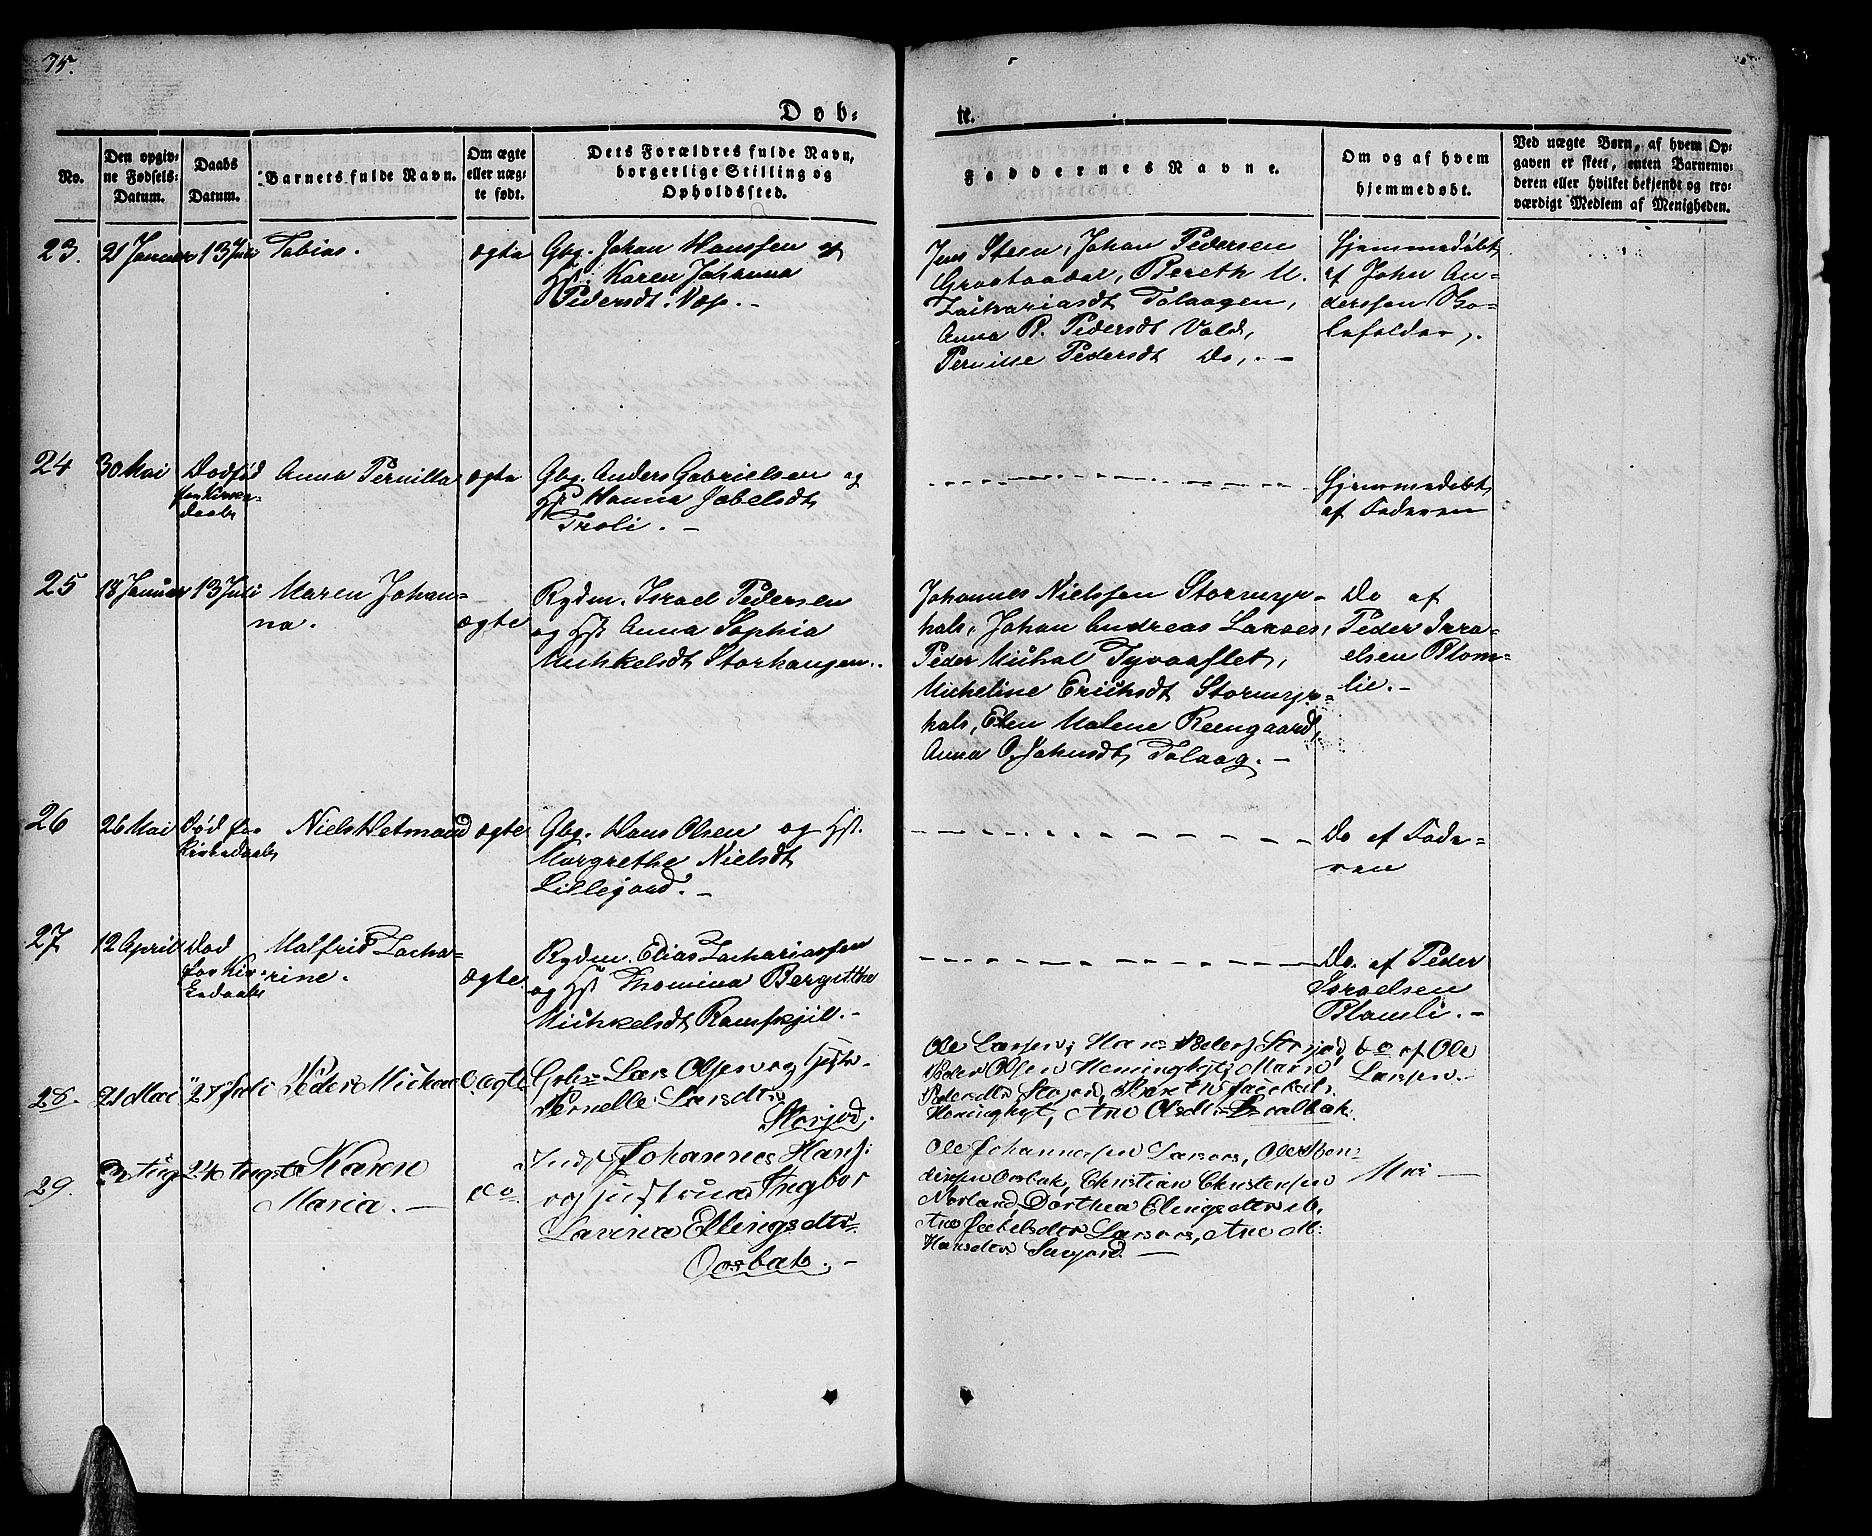 75.
Døb-
te.
No.
Den opgiv-
ne Fødsels-
Datum.
Daabs
Datum.
Barnets fulde Navn.
Om ægte
eller uæg-
te født.
Dets Forældres fulde Navn,
borgerlige Stilling og
Opholdssted.
Faddernes Navne.
Om og af hvem
hjemmedøbt.
Ved uægte Børn, af hvem Op-
gaven er skeet, enten Barnemo-
deren eller hvilket bekjendt og tro-
værdigt Medlem af Menigheden.
23. 21 Januar 13 Juli Tobias. ægte
Gbg. Johan Hanssen og
Hst. Karen Johanna
Pedersdt.
Jens Steen, Johan Pedersen
Graataadal, Bereth M.
Zachariasdt Tolaagen,
Anna B. Pedersdt Vold,
Pernille Pedersdt Do,. -
Hjemmedøbt
af John An-
derssen
24 30 Mai Dødfød
for Kirke-
daab
Anna Pernilla ægte
Gbg. Anders Gabrielsen og
Hst Hanna Jobelsdt
Troli. -
Hjemmedøbt
af Faderen
25 18 Januar 13 Juli Maren Johan-
na. ægte
Rydm. Israel Pedersen
og Hst Anna Sophia
Michkelsdt Storhaugen..
Johannes Nielssen Stormyr-
hals, Johan Andreas Laxaes,
Peder Michal
Micheline Erichsdt Stormyr-
hals, Elen Malene Reengaard,
Anna O. Johnsdt, Tolaag. -
Do af
Peder Isra-
elsen Blom-
lie. -
26 26 Mai Død før
Kirkedaab
Niels Hetmand ægte
Gbg. Hans Olsen og Hst.
Margrethe Nielsdt
Lillejord. -
Do af Fade-
ren
27 12 April Død
for Kir-
kedaab
Malfrid Zacha-
rine. ægte
Rydm. Elias Zachariassen
og Hst Thomina Bergitha
Michkelsdt Ramskjell. -
Do. af Peder
Israelsen
Blomli. -
28. 21 Mai 27 Juli Peder Michael ægte
Lars Olsen og Hustr.
Pernelle Larsdtr
Storjord.
Ole Larsen, Hans Peders Storjord
Peder Olsen Heminghyt, Maria
Pedersdtr Storjord,
Heminghyt, Ane Olsdtr
Do af Ole
Larsen.
29. 24 August Karen
Maria. - do.
Inds Johannes Hans:
og Hustrue Ingbor
Lavina Ellingsdtr
Oosbak. -
Ole Johannesen Laxaes, Ole Ben-
dixen Oosbak, Christian Christensen
Nordland, Dorthea Elingsdtr
Ane Jakelsdtr Laxaes, Ane M:
Hansdtr Saxjord. -